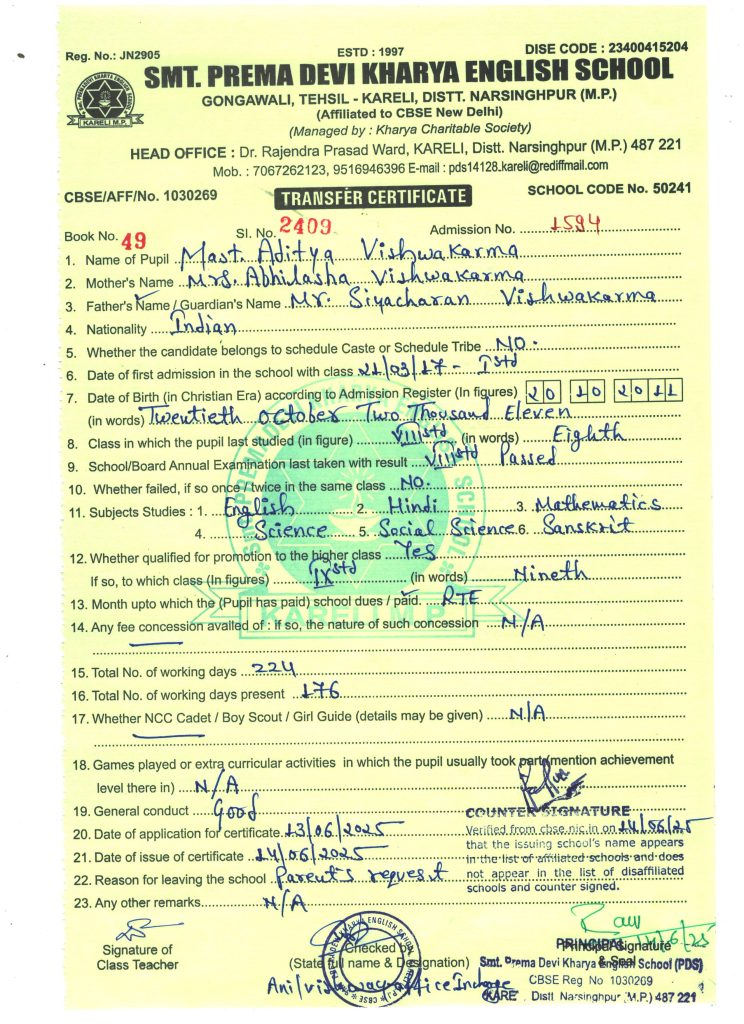 Reg. No.: JN2905 ESTD : 1997 DISE CODE : 23400415204
SMT. PREMA DEVI KHARYA ENGLISH SCHOOL
KARELI M.P.
GONGAWALI, TEHSIL - KARELI, DISTT. NARSINGHPUR (M.P.)
(Affiliated to CBSE New Delhi)
(Managed by : Kharya Charitable Society)
HEAD OFFICE : Dr. Rajendra Prasad Ward, KARELI, Distt. Narsinghpur (M.P.) 487 221
Mob. : 7067262123, 9516946396 E-mail : pds14128.kareli@rediffmail.com
CBSE/AFF/No. 1030269 TRANSFER CERTIFICATE SCHOOL CODE No. 50241
Book No. 49 Sl. No. 2409 Admission No. 1594
1. Name of Pupil Mast. Aditya Vishwakarma
2. Mother's Name Mrs. Abhilasha Vishwakarma
3. Father's Name / Guardian's Name Mr. Siyacharan Vishwakarma
4. Nationality Indian
5. Whether the candidate belongs to schedule Caste or Schedule Tribe NO.
6. Date of first admission in the school with class 21/03/17 - Istd
7. Date of Birth (in Christian Era) according to Admission Register (In figures) 20 10 2011
(in words) Twentieth October Two Thousand Eleven
8. Class in which the pupil last studied (in figure) VIII std (in words) Eighth
9. School/Board Annual Examination last taken with result VIII std Passed
10. Whether failed, if so once / twice in the same class NO.
11. Subjects Studies : 1. English 2. Hindi 3. Mathematics
4. Science 5. Social Science 6. Sanskrit
12. Whether qualified for promotion to the higher class Yes
If so, to which class (In figures) IX std (in words) Nineth
13. Month upto which the (Pupil has paid) school dues / paid. RTE
14. Any fee concession avalled of : if so, the nature of such concession N/A
15. Total No. of working days 224
16. Total No. of working days present 176
17. Whether NCC Cadet / Boy Scout / Girl Guide (details may be given) N/A
18. Games played or extra curricular activities in which the pupil usually took part mention achievement
level there in) N/A
19. General conduct Good
COUNTER SIGNATURE
20. Date of application for certificate 13/06/2025
Verified from cbse.nic.in on 14/06/25
that the issuing school's name appears
21. Date of issue of certificate 14/06/2025
in the list of affiliated schools and does
22. Reason for leaving the school Parent's request
not appear in the list of disaffiliated
schools and counter signed.
23. Any other remarks N/A
Signature of
Class Teacher
Checked by
(State full name & Designation)
office Incharge
PRINCIPAL
Principal Signature
& Seal
Smt. Prema Devi Kharya English School (PDS)
CBSE Reg No 1030269
KARE Distt. Narsinghpur (M.P.) 487 221